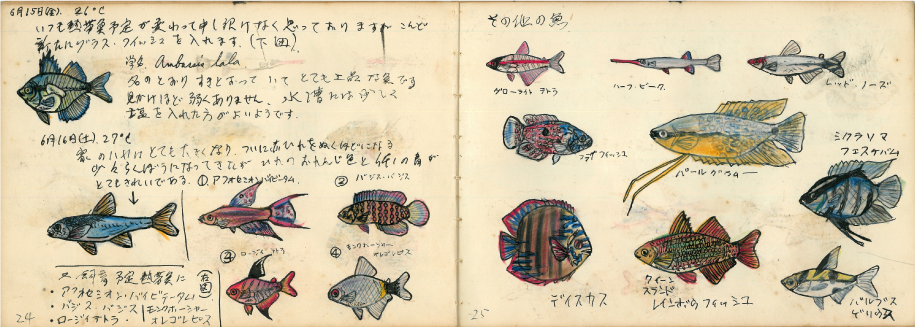 6月15日(金). 26°C
いつも熱帯魚予定が変わって申し訳けなく思っておりますが こんど
新たにグラス・フイッシュを入れます。(下図)
学名 Ambassis lala
名のとおり すきとおって いて とても上品な魚である
見かけほど弱くありません。水槽には少しく
塩を入れた方がよいようです.
6月16日(土). 27°C
とても大きくなり、ついにおびれをぬくほどになる
ひれの おれんじ色と 体の青が
とてもきれいである.
①アフオセミオン・バイビータム.
② バジス・バジス
③ ロージイ テトラ
④ モンクホーシャー
オレゴレピス
飼育予定熱帯魚に
(右図)
・アフオセミオン・バイビータム)
・バジス・バジス
・ロージイテトラ・
モンクホーシャー
オレゴレピス
24
その他の魚
グローライト テトラ
ハーフ・ビーク.
レッド. ノーズ
フラグ フイッシュ
パールグラミー
シクラソマ
フェスティバム
ディスカス
クイーン
スランド
レインボウフィッシュ
バルブス
25